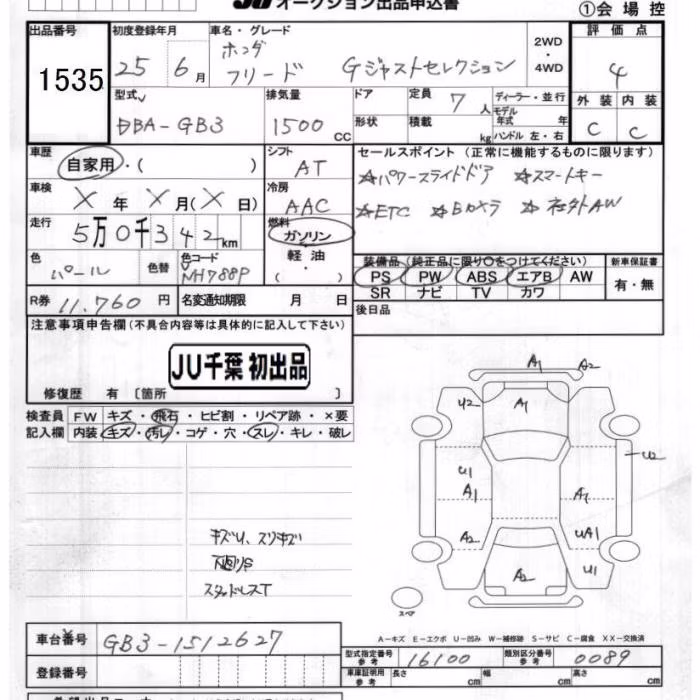 オークション出品申込書
①会場控
出品番号 初度登録年月 車名・グレード 評価点
1535 25 6月 ホンダ フリード Gジャストセレクション 2WD・4WD 4
型式 排気量 ドア 定員 7人 ディーラー・並行 外装 内装
DBA-GB3 1500cc 形状 積載 kg モデル年式 年 ハンドル 左・右 C C
車歴 自家用・( ) シフト AT セールスポイント (正常に機能するものに限ります)
車検 X年X月(X日) 冷房 AAC ☆パワースライドドア ☆スマートキー
走行 5万0千342km 燃料 ガソリン ☆ETC ☆Bカメラ ☆社外AW
色 パール 色替 色コード NH788P 軽油・( )
装備品 (純正品に限り○をつけてください) 新車保証書
PS PW ABS エアB AW 有・無
SR ナビ TV カワ
R券 11,760円 名変通知期限 月 日 後日品
注意事項申告欄(不具合内容等は具体的に記入して下さい)
JU千葉 初出品
修復歴 有 〔箇所 〕
検査員 FW キズ・飛石・ヒビ割・リペア跡・×要
記入欄 内装 キズ・汚レ・コゲ・穴・スレ・キレ・破レ
A1 A2
U2 A1
U2
U1
A1 A1
A2 UA1
A2 U1
キズU、スリキズ
下回りS
スタッドレスT
スペア
A-キズ E-エクボ U-凹み W-補修跡 S-サビ C-腐食 XX-交換済
車台番号 GB3-1512627
型式指定番号 参考 16100 類別区分番号 参考 0089
登録番号 車庫証明用 参考 長さ cm 幅 cm 高さ cm